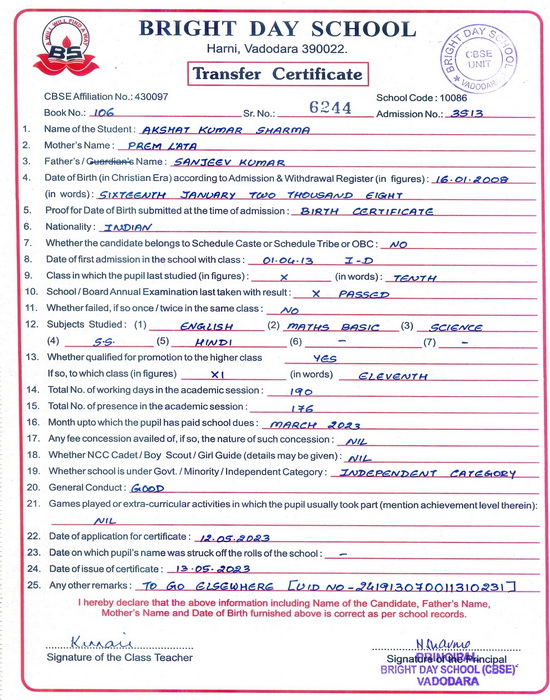 A WILL WILL FIND A WAY
BS
BRIGHT DAY SCHOOL
Harni, Vadodara 390022.
BRIGHT DAY SCHOOL
CBSE
UNIT
VADODARA
Transfer Certificate
CBSE Affiliation No.: 430097 School Code : 10086
Book No.: 106 Sr. No.: 6244 Admission No.: 3513
1. Name of the Student : AKSHAT KUMAR SHARMA
2. Mother's Name : PREM LATA
3. Father's / Guardian's Name : SANJEEV KUMAR
4. Date of Birth (in Christian Era) according to Admission & Withdrawal Register (in figures) : 16.01.2008
(in words) : SIXTEENTH JANUARY TWO THOUSAND EIGHT
5. Proof for Date of Birth submitted at the time of admission : BIRTH CERTIFICATE
6. Nationality : INDIAN
7. Whether the candidate belongs to Schedule Caste or Schedule Tribe or OBC : NO
8. Date of first admission in the school with class : 01.04.13 I-D
9. Class in which the pupil last studied (in figures) : X (in words) : TENTH
10. School / Board Annual Examination last taken with result : X PASSED
11. Whether failed, if so once / twice in the same class : NO
12. Subjects Studied : (1) ENGLISH (2) MATHS BASIC (3) SCIENCE
(4) S.S. (5) HINDI (6) – (7) –
13. Whether qualified for promotion to the higher class YES
If so, to which class (in figures) XI (in words) ELEVENTH
14. Total No. of working days in the academic session : 190
15. Total No. of presence in the academic session : 176
16. Month upto which the pupil has paid school dues : MARCH 2023
17. Any fee concession availed of, if so, the nature of such concession : NIL
18. Whether NCC Cadet / Boy Scout / Girl Guide (details may be given) : NIL
19. Whether school is under Govt. / Minority / Independent Category : INDEPENDENT CATEGORY
20. General Conduct : GOOD
21. Games played or extra-curricular activities in which the pupil usually took part (mention achievement level therein):
NIL
22. Date of application for certificate : 12.05.2023
23. Date on which pupil's name was struck off the rolls of the school : –
24. Date of issue of certificate : 13.05.2023
25. Any other remarks : TO GO ELSEWHERE [UID NO - 241913070011310231]
I hereby declare that the above information including Name of the Candidate, Father's Name,
Mother's Name and Date of Birth furnished above is correct as per school records.
Signature of the Class Teacher Signature of the Principal
PRINCIPAL
BRIGHT DAY SCHOOL (CBSE)
VADODARA